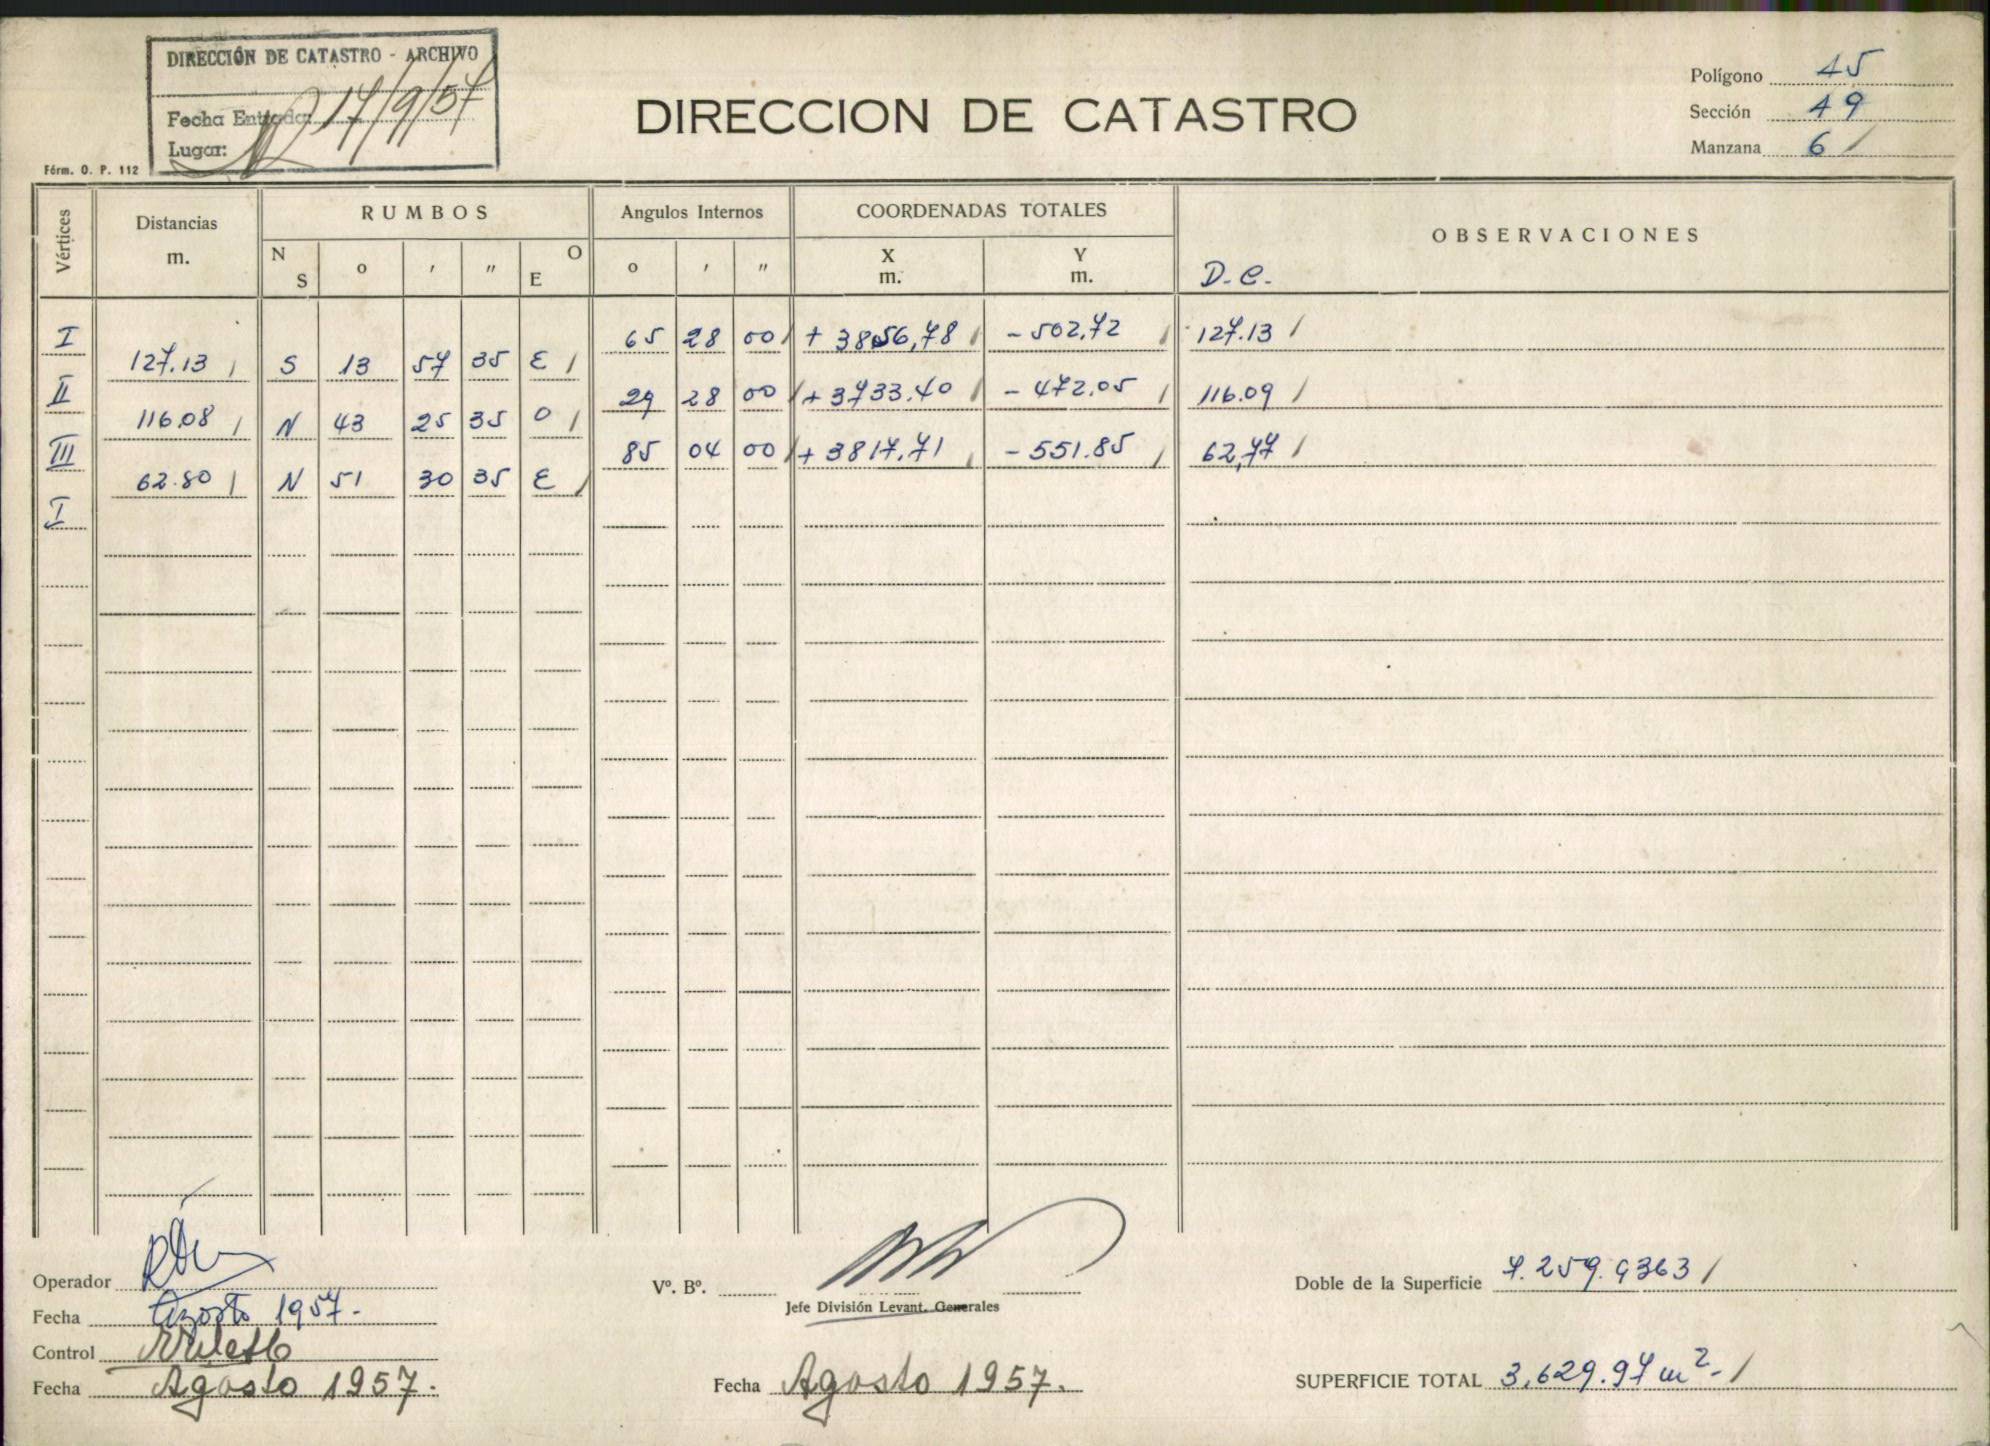 DIRECCIÓN DE CATASTRO - ARCHIVO
Fecha Entrada: 17/9/57
Lugar:
Férm. O. P. 112
DIRECCION DE CATASTRO
Polígono 45
Sección 49
Manzana 6 /
Vértices
Distancias m.
RUMBOS
N S o ′ ″ O E
Angulos Internos
o ′ ″
COORDENADAS TOTALES
X m. Y m.
OBSERVACIONES
D.C.
I 65 28 00 / + 3856,78 / - 502,72 / 127.13 /
127.13 / S 13 57 35 E /
II 29 28 00 / + 3733.40 / - 472.05 / 116.09 /
116.08 / N 43 25 35 O /
III 85 04 00 / + 3817,71 / - 551.85 / 62,77 /
62.80 / N 51 30 35 E /
I
Operador
Fecha Agosto 1957.
Control
Fecha Agosto 1957.
Vº. Bº.
Jefe División Levant. Generales
Fecha Agosto 1957.
Doble de la Superficie 7.259.9363 /
SUPERFICIE TOTAL 3,629.97 m² - /